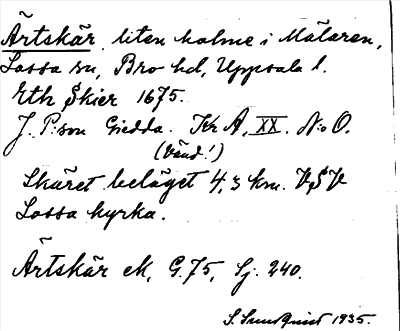 Ärtskär, liten holme i Mälaren,
Lossa sn, Bro hd, Uppsala l.
Erth Skier 1675.
J. P:son Giedda. Kr A, XX. N:o O.
(Vänd!)
Skäret beläget 4,3 km. V,SV
Lossa kyrka.
Ärtskär ek, G. 75, Sj. 240.
S. Sundquist 1935.